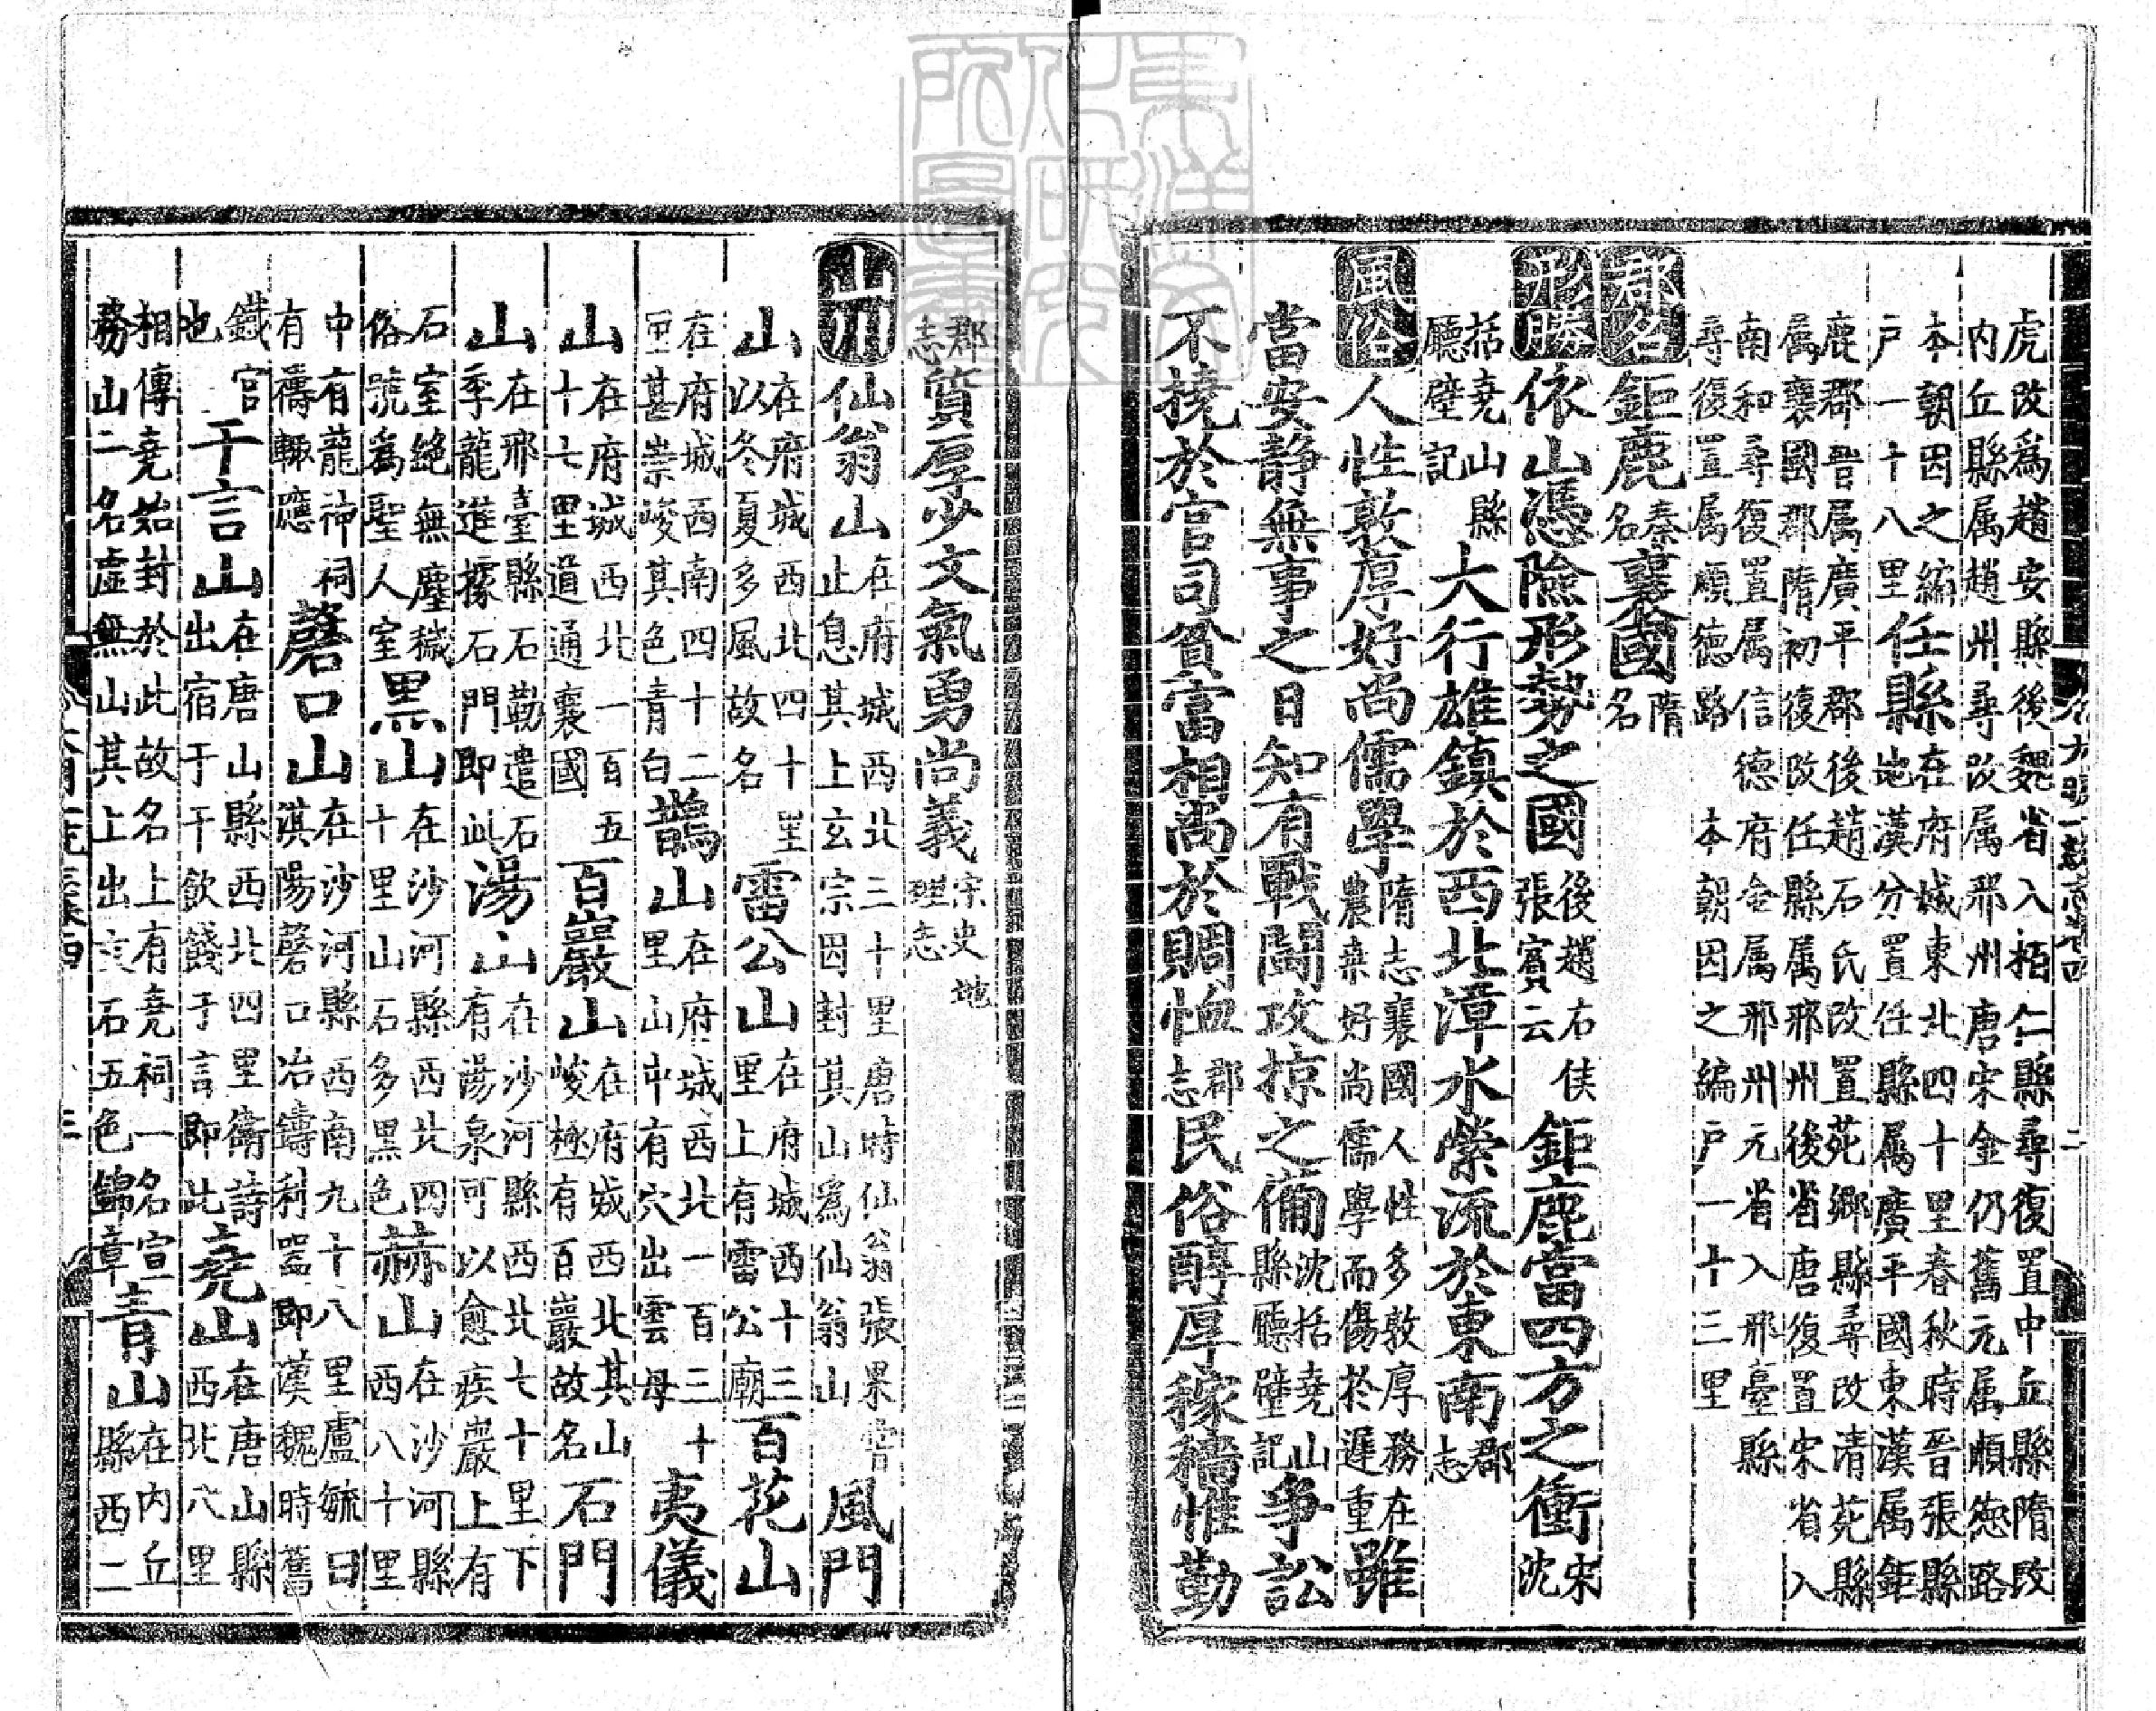 虎改為趙安縣後魏省入栢仁縣尋復置中丘縣隋改
内丘縣属趙州尋改属邢州唐宋金仍舊元属順德路
本朝因之編戶一十八里任縣在府城東北四十里春秋時晉張縣地漢分置任縣属廣平國東漢属鉅
鹿郡晉属廣平郡後趙石氏改置苑鄉縣尋改清苑縣
属襄國郡隋初復改任縣属邢州後省唐復置宋省入
南和尋復置属信德府金属邢州元省入邢臺縣
尋復置属順德路 本朝因之編戶一十三里
郡名 鉅鹿秦名襄國隋名
形勝 依山憑險形勢之國後趙右侯張賓云鉅鹿當四方之衝宋沈
括堯山縣廳壁記大行雄鎮於西北漳水縈流於東南郡志
風俗 人性敦厚好尚儒學隋志襄國人性多敦厚務在農桑好尚儒學而傷於遲重雖
當安静無事之日知有戰鬬攻掠之備沈括堯山縣廳壁記爭訟
不撓於官司貧富相髙於賙恤郡志民俗醇厚稼穡惟勤
大明一統志卷四 二
郡志質厚少文氣勇尚義宋史地理志
山川 仙翁山在府城西北三十里唐時仙翁張果嘗止息其上玄宗因封其山為仙翁山風門
山在府城西北四十里以冬夏多風故名雷公山在府城西十三里上有雷公廟百花山
在府城西南四十二里甚崇峻其色青白鵲山在府城西北一百三十里山中有穴出雲母夷儀
山在府城西北一百五十七里道通襄國百巖山在府城西北其山峻極有百巖故名石門
山在邢臺縣石勒遣石季龍進據石門即此湯山在沙河縣西北七十里下有湯泉可以愈疾巖上有
石室絶無塵穢俗號為聖人室黒山在沙河縣西北四十里山石多黒色赫山在沙河縣西八十里
中有龍神祠有禱輙應磬口山在沙河縣西南九十八里盧毓曰淇陽磬口冶鑄利器即漢魏時舊
鐵官也干言山在唐山縣西北四里衛詩出宿于干飲餞于言即此堯山在唐山縣西北八里
相傳堯始封於此故名上有堯祠一名宣務山二名虚無山其上出文石五色錦章青山在内丘縣西二
三